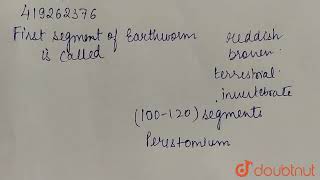 419262376
First segment of Earthworm
is called
Reddish
brown
terrestrial
invertebrate
(100-120) segments
Peristomium
doubtnut